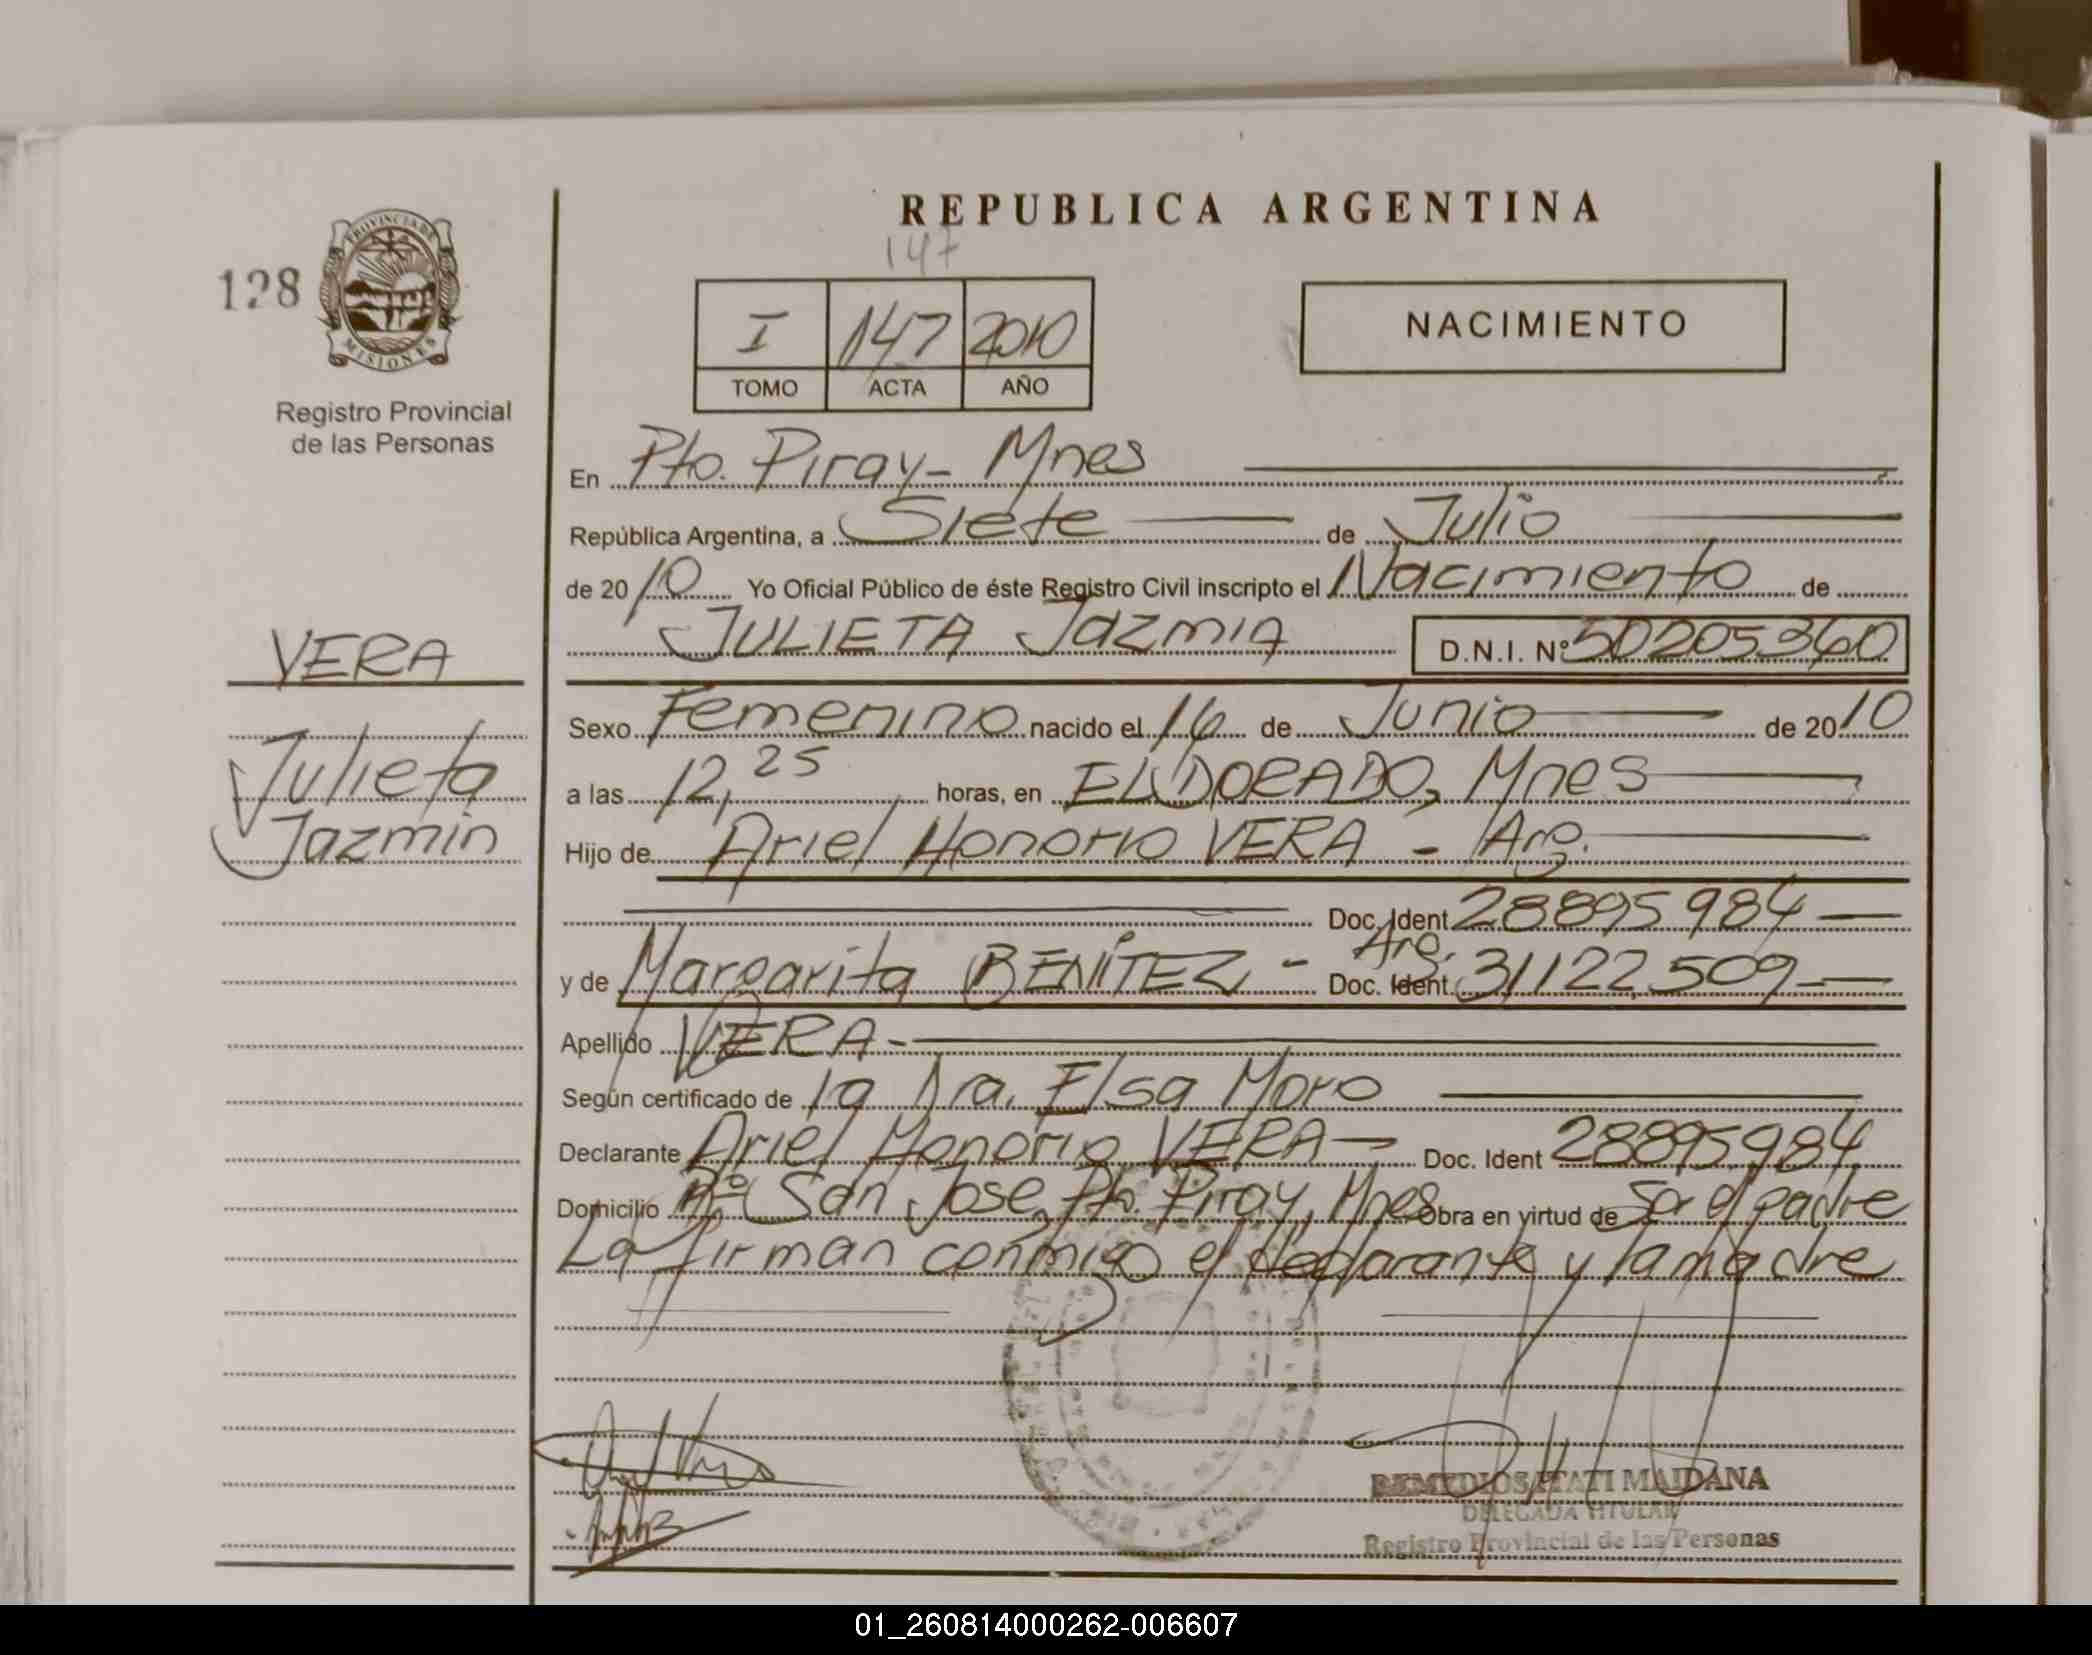 REPUBLICA ARGENTINA
147
128
PROVINCIA DE
MISIONES
Registro Provincial
de las Personas
I 147 2010
TOMO ACTA AÑO
NACIMIENTO
En Pto. Piray - Mnes
República Argentina, a Siete de Julio
de 2010 Yo Oficial Público de éste Registro Civil inscripto el Nacimiento de
JULIETA Jazmin D.N.I. Nº 50205360
VERA
Julieta
Jazmin
Sexo Femenino nacido el 16 de Junio de 2010
a las 12,25 horas, en ELDORADO, Mnes
Hijo de Ariel Honorio VERA - Arg.
Doc. Ident 28895984
y de Margarita BENÍTEZ - Arg. Doc. Ident. 31122509
Apellido VERA
Según certificado de la Dra. Elsa Moro
Declarante Ariel Honorio VERA Doc. Ident 28895984
Domicilio Bº San Jose, Pto. Piray, Mnes Obra en virtud de Ser el padre
La firman conmigo el declarante y la madre
REMEDIOS ITATI MAIDANA
DELEGADA TITULAR
Registro Provincial de las Personas
01_260814000262-006607